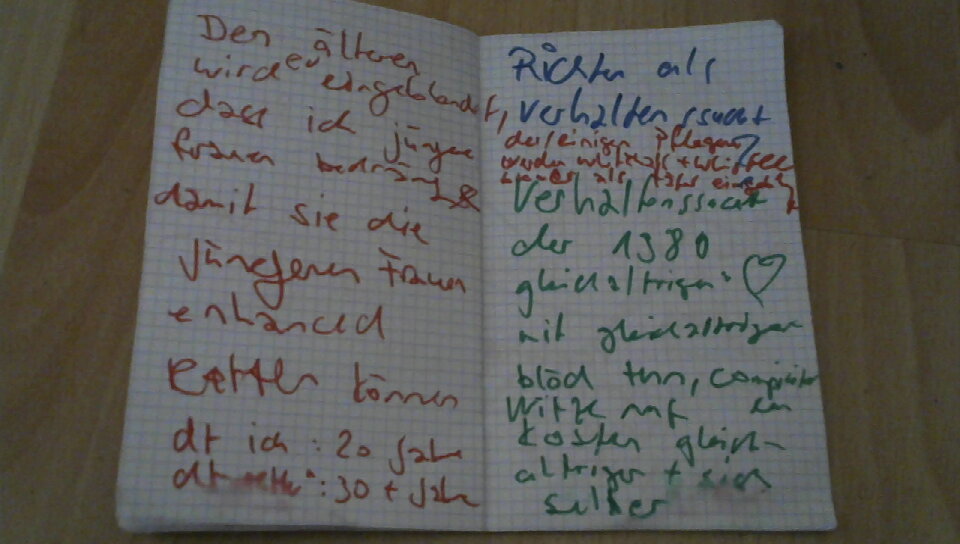 Den älteren
wird eingeblendet,
dass ich jüngere
frauen
damit sie die
jüngeren Frauen
enhanced
retten können
dt ich : 20 Jahre
dt : 30 + Jahre
Richten als
verhaltenssucht
derjenigen
werden als einge
Verhaltenssucht
der 1380
gleichaltrigen ♡
mit gleichaltrigen
blöd tun, computer
Witze auf den
Kosten gleich-
altriger + sich
selber